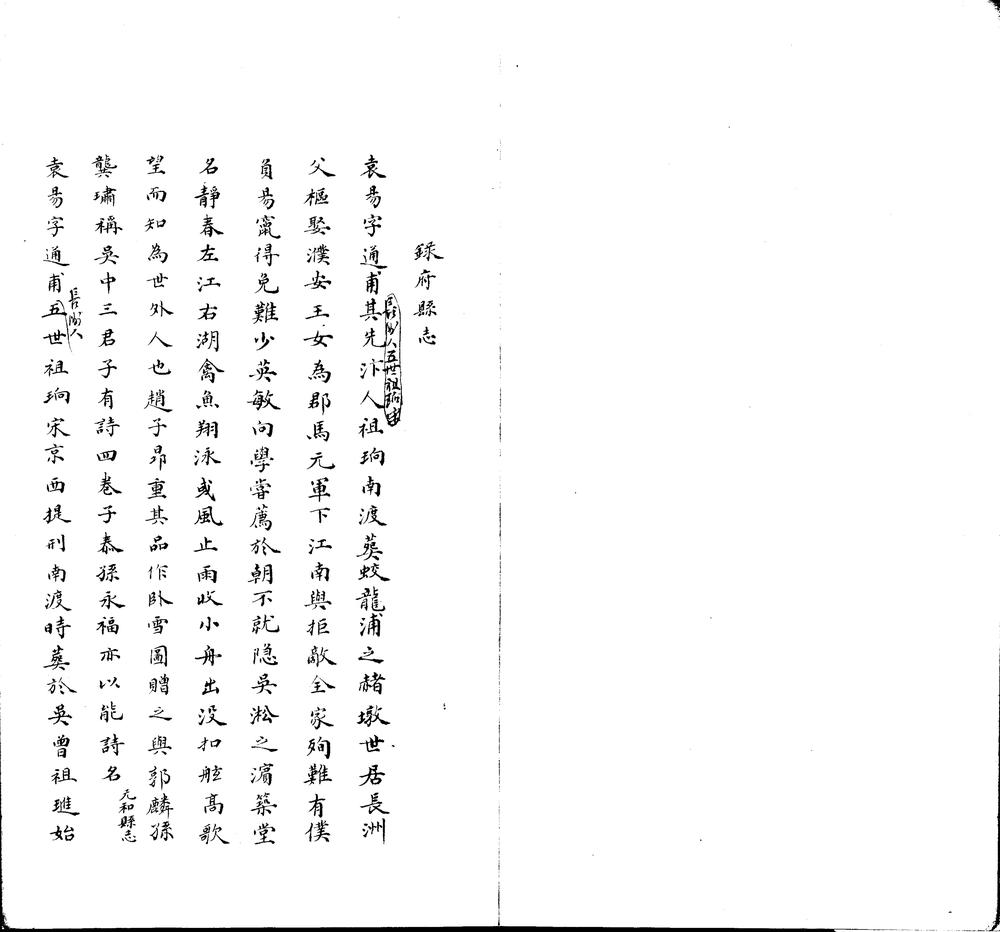 錄府縣志
袁易字通甫其先汴人祖珦南渡葬蛟龍浦之赭墩世居長洲
長洲人五世祖珦宋
父樞娶濮安王女為郡馬元軍下江南與拒敵全家殉難有僕
負易竄得免難少英敏向學嘗薦於朝不就隱吳淞之濵築堂
名靜春左江右湖禽魚翔泳或風止雨收小舟出没扣舷髙歌
望而知為世外人也趙子昂重其品作卧雪圖贈之與郭麟孫
龔璛稱吳中三君子有詩四卷子泰孫永福亦以能詩名
元和縣志
長洲人
袁易字通甫五世祖珦宋京西提刑南渡時葬於吳曾祖璡始